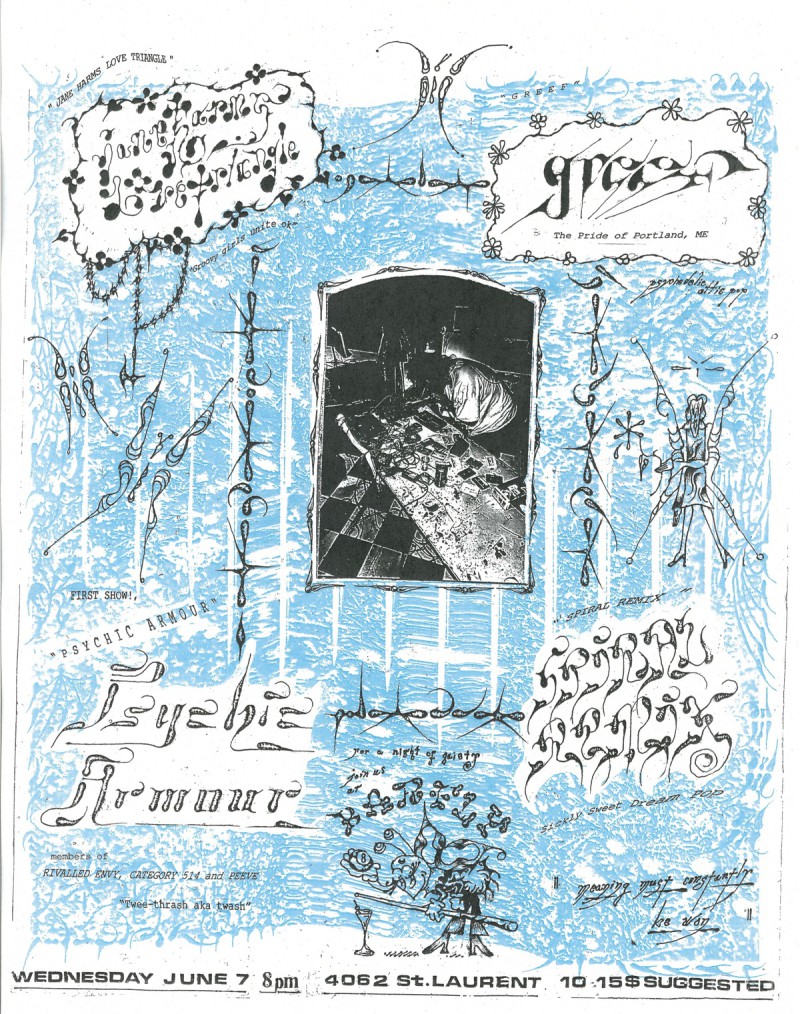 "JANE HARMS LOVE TRIANGLE"
Jane harms
love triangle
"Groovy girls unite ok"
"GREEF"
greef
The Pride of Portland, ME
psychedelic
attic pop
FIRST SHOW!,
"PSYCHIC ARMOUR"
Psychic
Armour
members of
RIVALLED ENVY, CATEGORY 514 and PEEVE
"Twee-thrash aka twash"
"SPIRAL REMIX"
SPIRAL
REMIX
Sickly Sweet Dream POP
For a night of
join us
at
WEDNESDAY JUNE 7 8pm 4062 St.LAURENT 10-15$ SUGGESTED